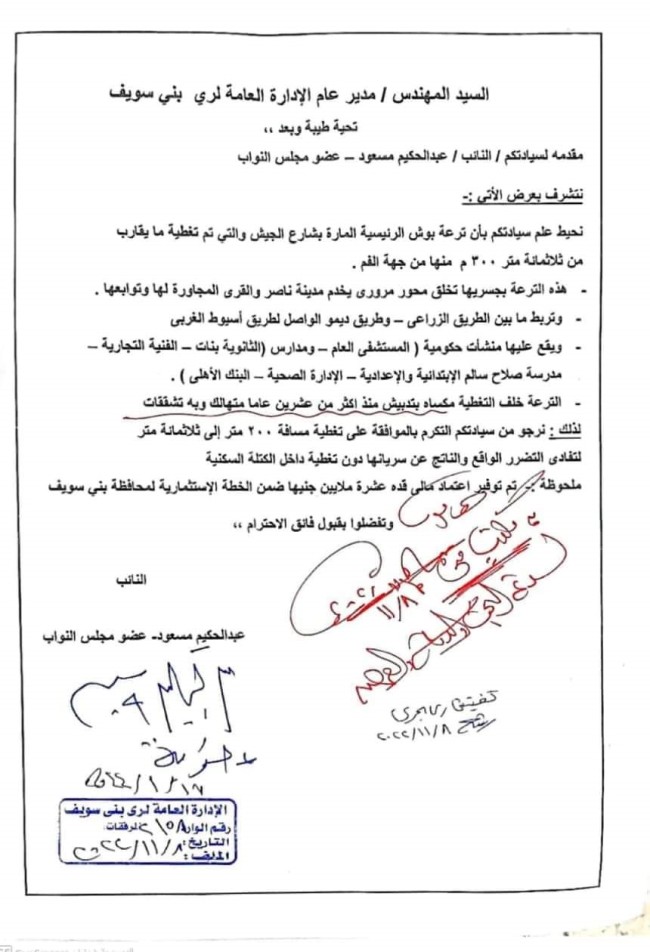 السيد المهندس / مدير عام الإدارة العامة لري بني سويف
تحية طيبة وبعد ،،
مقدمه لسيادتكم / النائب / عبدالحكيم مسعود – عضو مجلس النواب
نتشرف بعرض الأتي :-
نحيط علم سيادتكم بأن ترعة بوش الرئيسية المارة بشارع الجيش والتي تم تغطية ما يقارب
من ثلاثمائة متر ٣٠٠ م منها من جهة الفم .
- هذه الترعة بجسريها تخلق محور مرورى يخدم مدينة ناصر والقرى المجاورة لها وتوابعها .
- وتربط ما بين الطريق الزراعى – وطريق ديمو الواصل لطريق أسيوط الغربى
- ويقع عليها منشأت حكومية ( المستشفى العام – ومدارس (الثانوية بنات – الفنية التجارية –
مدرسة صلاح سالم الإبتدائية والإعدادية – الإدارة الصحية – البنك الأهلى ) .
- الترعة خلف التغطية مكساه بتدبيش منذ اكثر من عشرين عاما متهالك وبه تشققات
لذلك : نرجو من سيادتكم التكرم بالموافقة على تغطية مسافة ٢٠٠ متر إلى ثلاثمائة متر
لتفادى التضرر الواقع والناتج عن سريانها دون تغطية داخل الكتلة السكنية
ملحوظة :- تم توفير اعتماد مالى قده عشرة ملايين جنيها ضمن الخطة الإستثمارية لمحافظة بني سويف
وتفضلوا بقبول فائق الاحترام ،،
النائب
١١/٨
عبدالحكيم مسعود- عضو مجلس النواب
٢٠٢٢/١١/٨
الإدارة العامة لرى بنى سويف
رقم الوارد ٢١٥٨ المرفقات:
التاريخ: ٢٠٢٢/١١/٨
الملف: